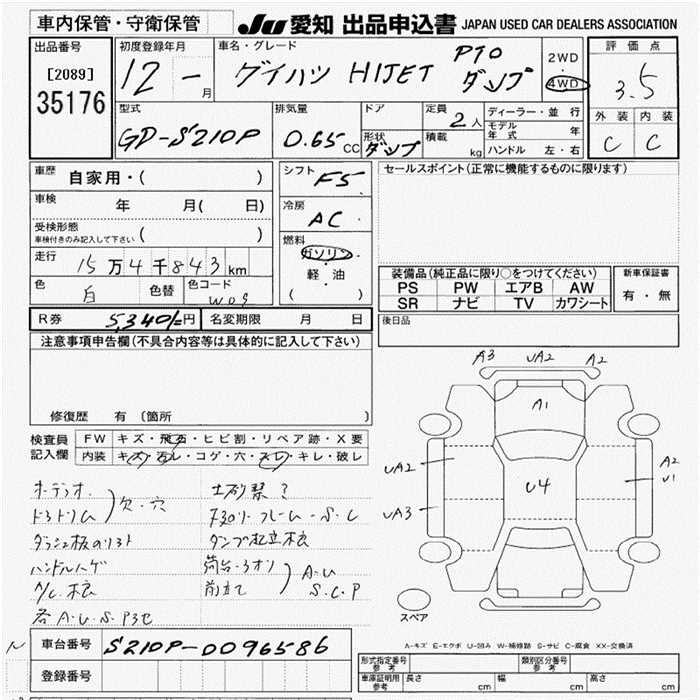 車内保管・守衛保管
JU 愛知 出品申込書 JAPAN USED CAR DEALERS ASSOCIATION
出品番号
[2089]
35176
初度登録年月
12 - 月
車名・グレード
HIJET PTO ダンプ
2WD
・
4WD
評価点
3.5
外装 内装
C C
型式
GD-S210P
排気量
0.65 CC
ドア
形状
ダンプ
定員
2人
積載
kg
ディーラー・並行
モデル年式 年
ハンドル 左・右
車歴
自家用・( )
車検
年 月( 日)
受検形態
車検付きのみ記入して下さい ( )
走行
15万4千843km
色
白
色替
色コード
W09
シフト
F5
冷房
AC
燃料
ガソリン
・
軽・油
( )
セールスポイント(正常に機能するものに限ります)
装備品(純正品に限り○をつけてください)
PS PW エアB AW
SR ナビ TV カワシート
新車保証書
有・無
R券 5,340/=円 名変期限 月 日
後日品
注意事項申告欄(不具合内容等は具体的に記入して下さい)
修復歴 有 (箇所 )
検査員記入欄
FW キズ・飛石・ヒビ割・リペア跡・X要
内装 キズ・汚レ・コゲ・穴・スレ・キレ・破レ
オーデリオ.
ドラトリム
欠・穴
ハンドルハゲ
A/C
各A.U.S.P3セ
フロリ フレーム-S.C
荷台・3オリ
前立て
A.U
S.C.P
A3 UA2 A2
A1
UA2
U4
A2
U1
UA3
スペア
A-キズ E-エクボ U-凹み W-補修跡 S-サビ C-腐食 XX-交換済
車台番号 S210P-0096586
登録番号
形式指定番号
参考
類別区分番号
参考
車庫証明用
参考
長さ cm
幅 cm
高さ cm